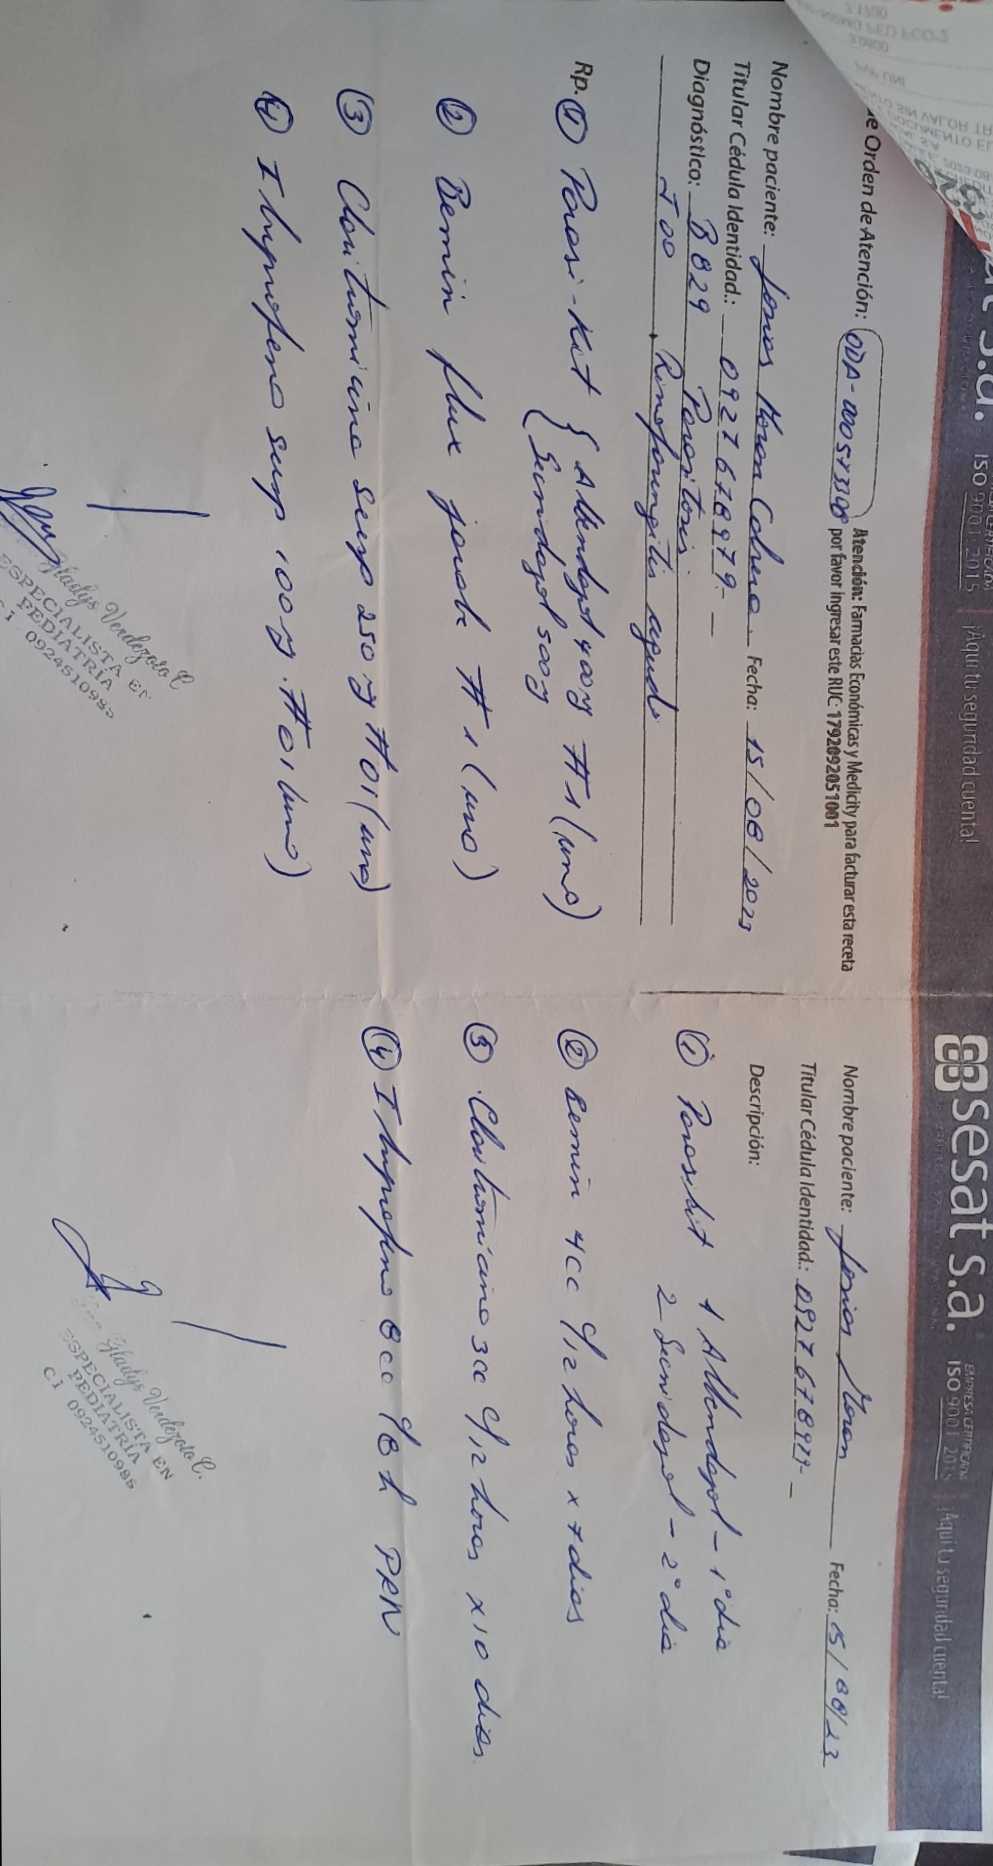 sesat s.a.
ISO 9001:2015
¡Aquí tu seguridad cuenta!
de Orden de Atención: ODA-
Atención: Farmacias Económicas y Medicity para facturar esta receta
por favor ingresar este RUC: 1792092051001
Nombre paciente: Josias Moran Fecha: 15/08/2023
Titular Cédula Identidad.: 0927678979-
Diagnóstico: B829 Parasitosis
J00 Rinofaringitis aguda
Rp. ① Parasi-Kit { Albendazol 400mg #1 (uno)
Secnidazol 500mg
② Bemin flux jarabe #1 (uno)
③ Claritromicina susp 250mg #01 (uno)
④ Ibuprofeno susp 100mg #01 (uno)
Gladys Verdezoto C.
ESPECIALISTA EN
PEDIATRÍA
0924510985
sesat s.a.
EMPRESA CERTIFICADA
ISO 9001:2015
¡Aquí tu seguridad cuenta!
Nombre paciente: Josias Moran Fecha: 15/08/23
Titular Cédula Identidad.: 0927678979-
Descripción:
① Parasikit 1 Albendazol - 1° dia
2 Secnidazol - 2° dia
② Bemin 4cc c/12 horas x 7 dias
③ Claritromicina 3cc c/12 horas x 10 dias
④ Ibuprofeno 8cc c/8h PRN
Gladys Verdezoto C.
ESPECIALISTA EN
PEDIATRÍA
C.I 0924510985